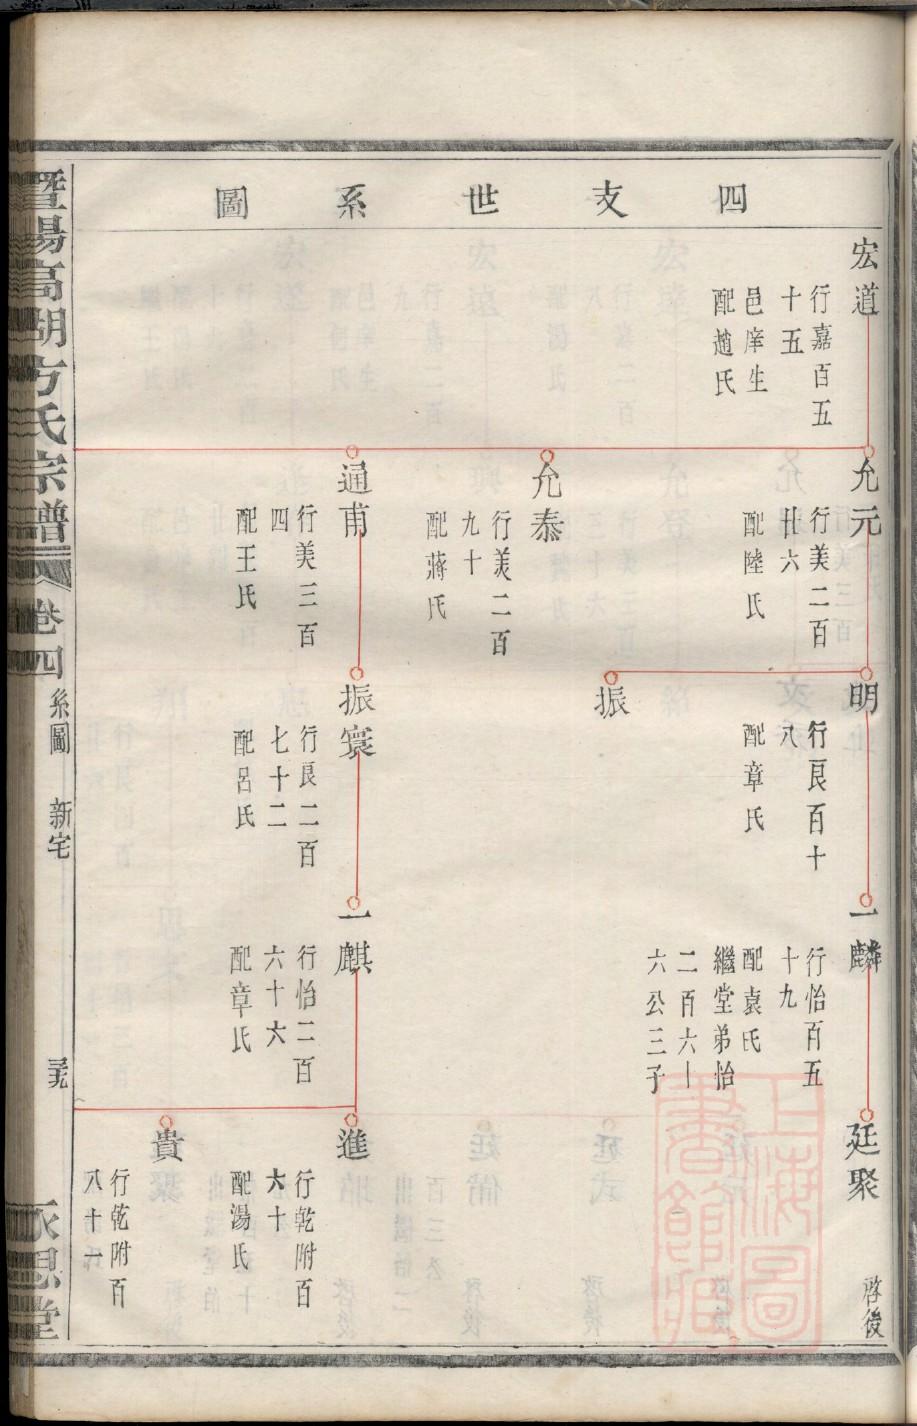 四支世系圖
宏道
行嘉百五
十五
邑庠生
配趙氏
允元
行美二百
卄六
配陸氏
允泰
行美二百
九十
配蔣氏
通甫
行美三百
四
配王氏
明
行艮百十
八
配章氏
振
振寰
行艮二百
七十二
配呂氏
一麟
行怡百五
十九
配袁氏
繼堂弟怡
二百六十
六公三子
一麒
行怡二百
六十六
配章氏
廷聚
啓後
進
行乾附百
六十
配湯氏
貴
行乾附百
八十一
暨陽高湖方氏宗譜
卷四
系圖
新宅
永思堂
上海圖書館藏